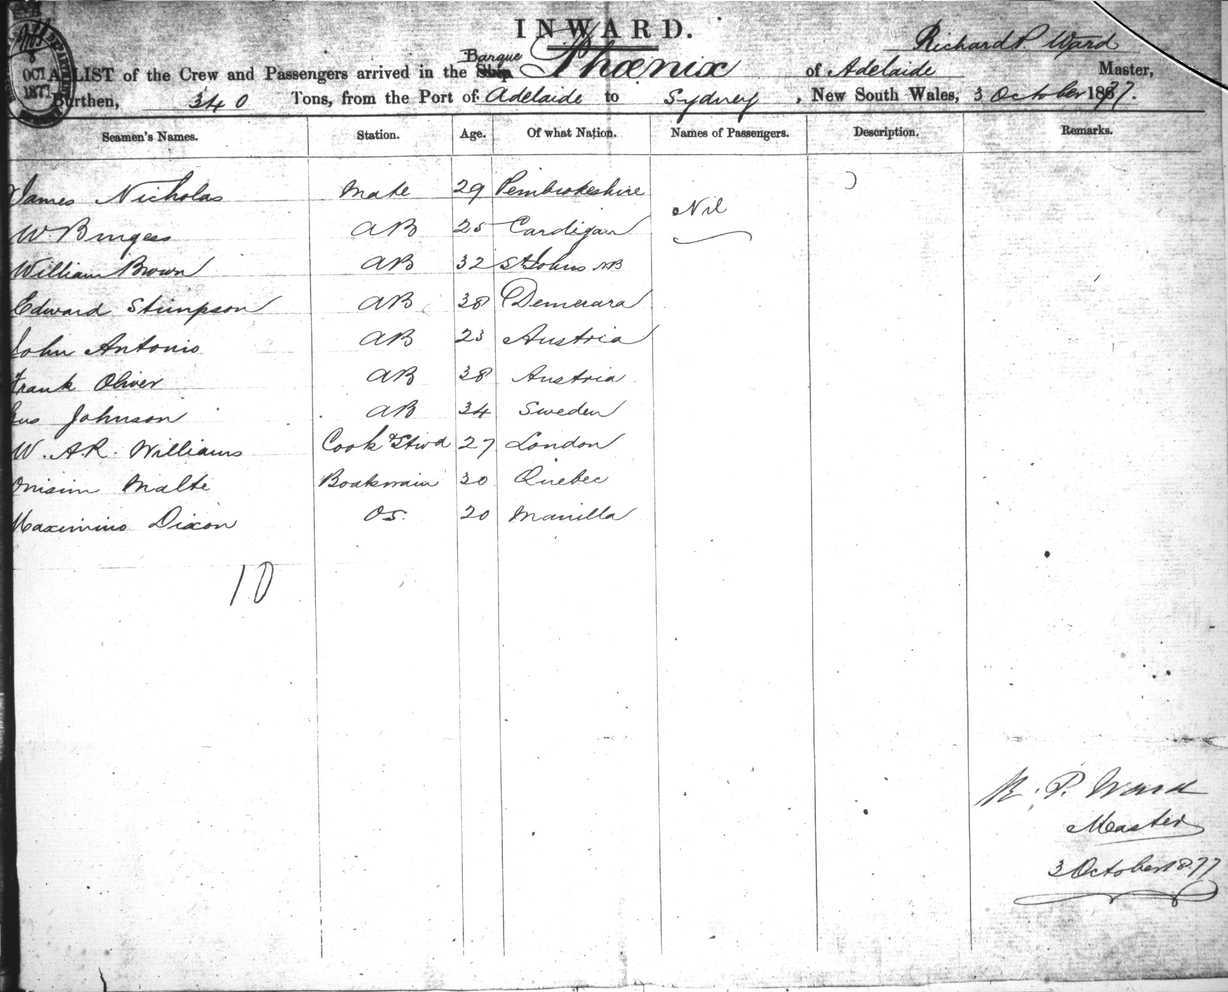 INWARD.
Richard P. Ward
Barque
A LIST of the Crew and Passengers arrived in the Ship Phœnix of Adelaide Master,
OCT
1877
Burthen, 340 Tons, from the Port of Adelaide to Sydney, New South Wales, 3 October 1877.
Seamen's Names. Station. Age. Of what Nation. Names of Passengers. Description. Remarks.
James Nicholas Mate 29 Pembrokeshire
Nil
W. Burgess AB 25 Cardigan
William Brown AB 32 St Johns NB
Edward Stimpson AB 38 Demerara
John Antonio AB 23 Austria
Frank Oliver AB 38 Austria
Johnson AB 34 Sweden
W. A.R. Williams Cook & Stwd 27 London
Onisim Malte Boatswain 30 Quebec
Maximino Dixon OS. 20 Manilla
10
R. P. Ward
Master
3 October 1877